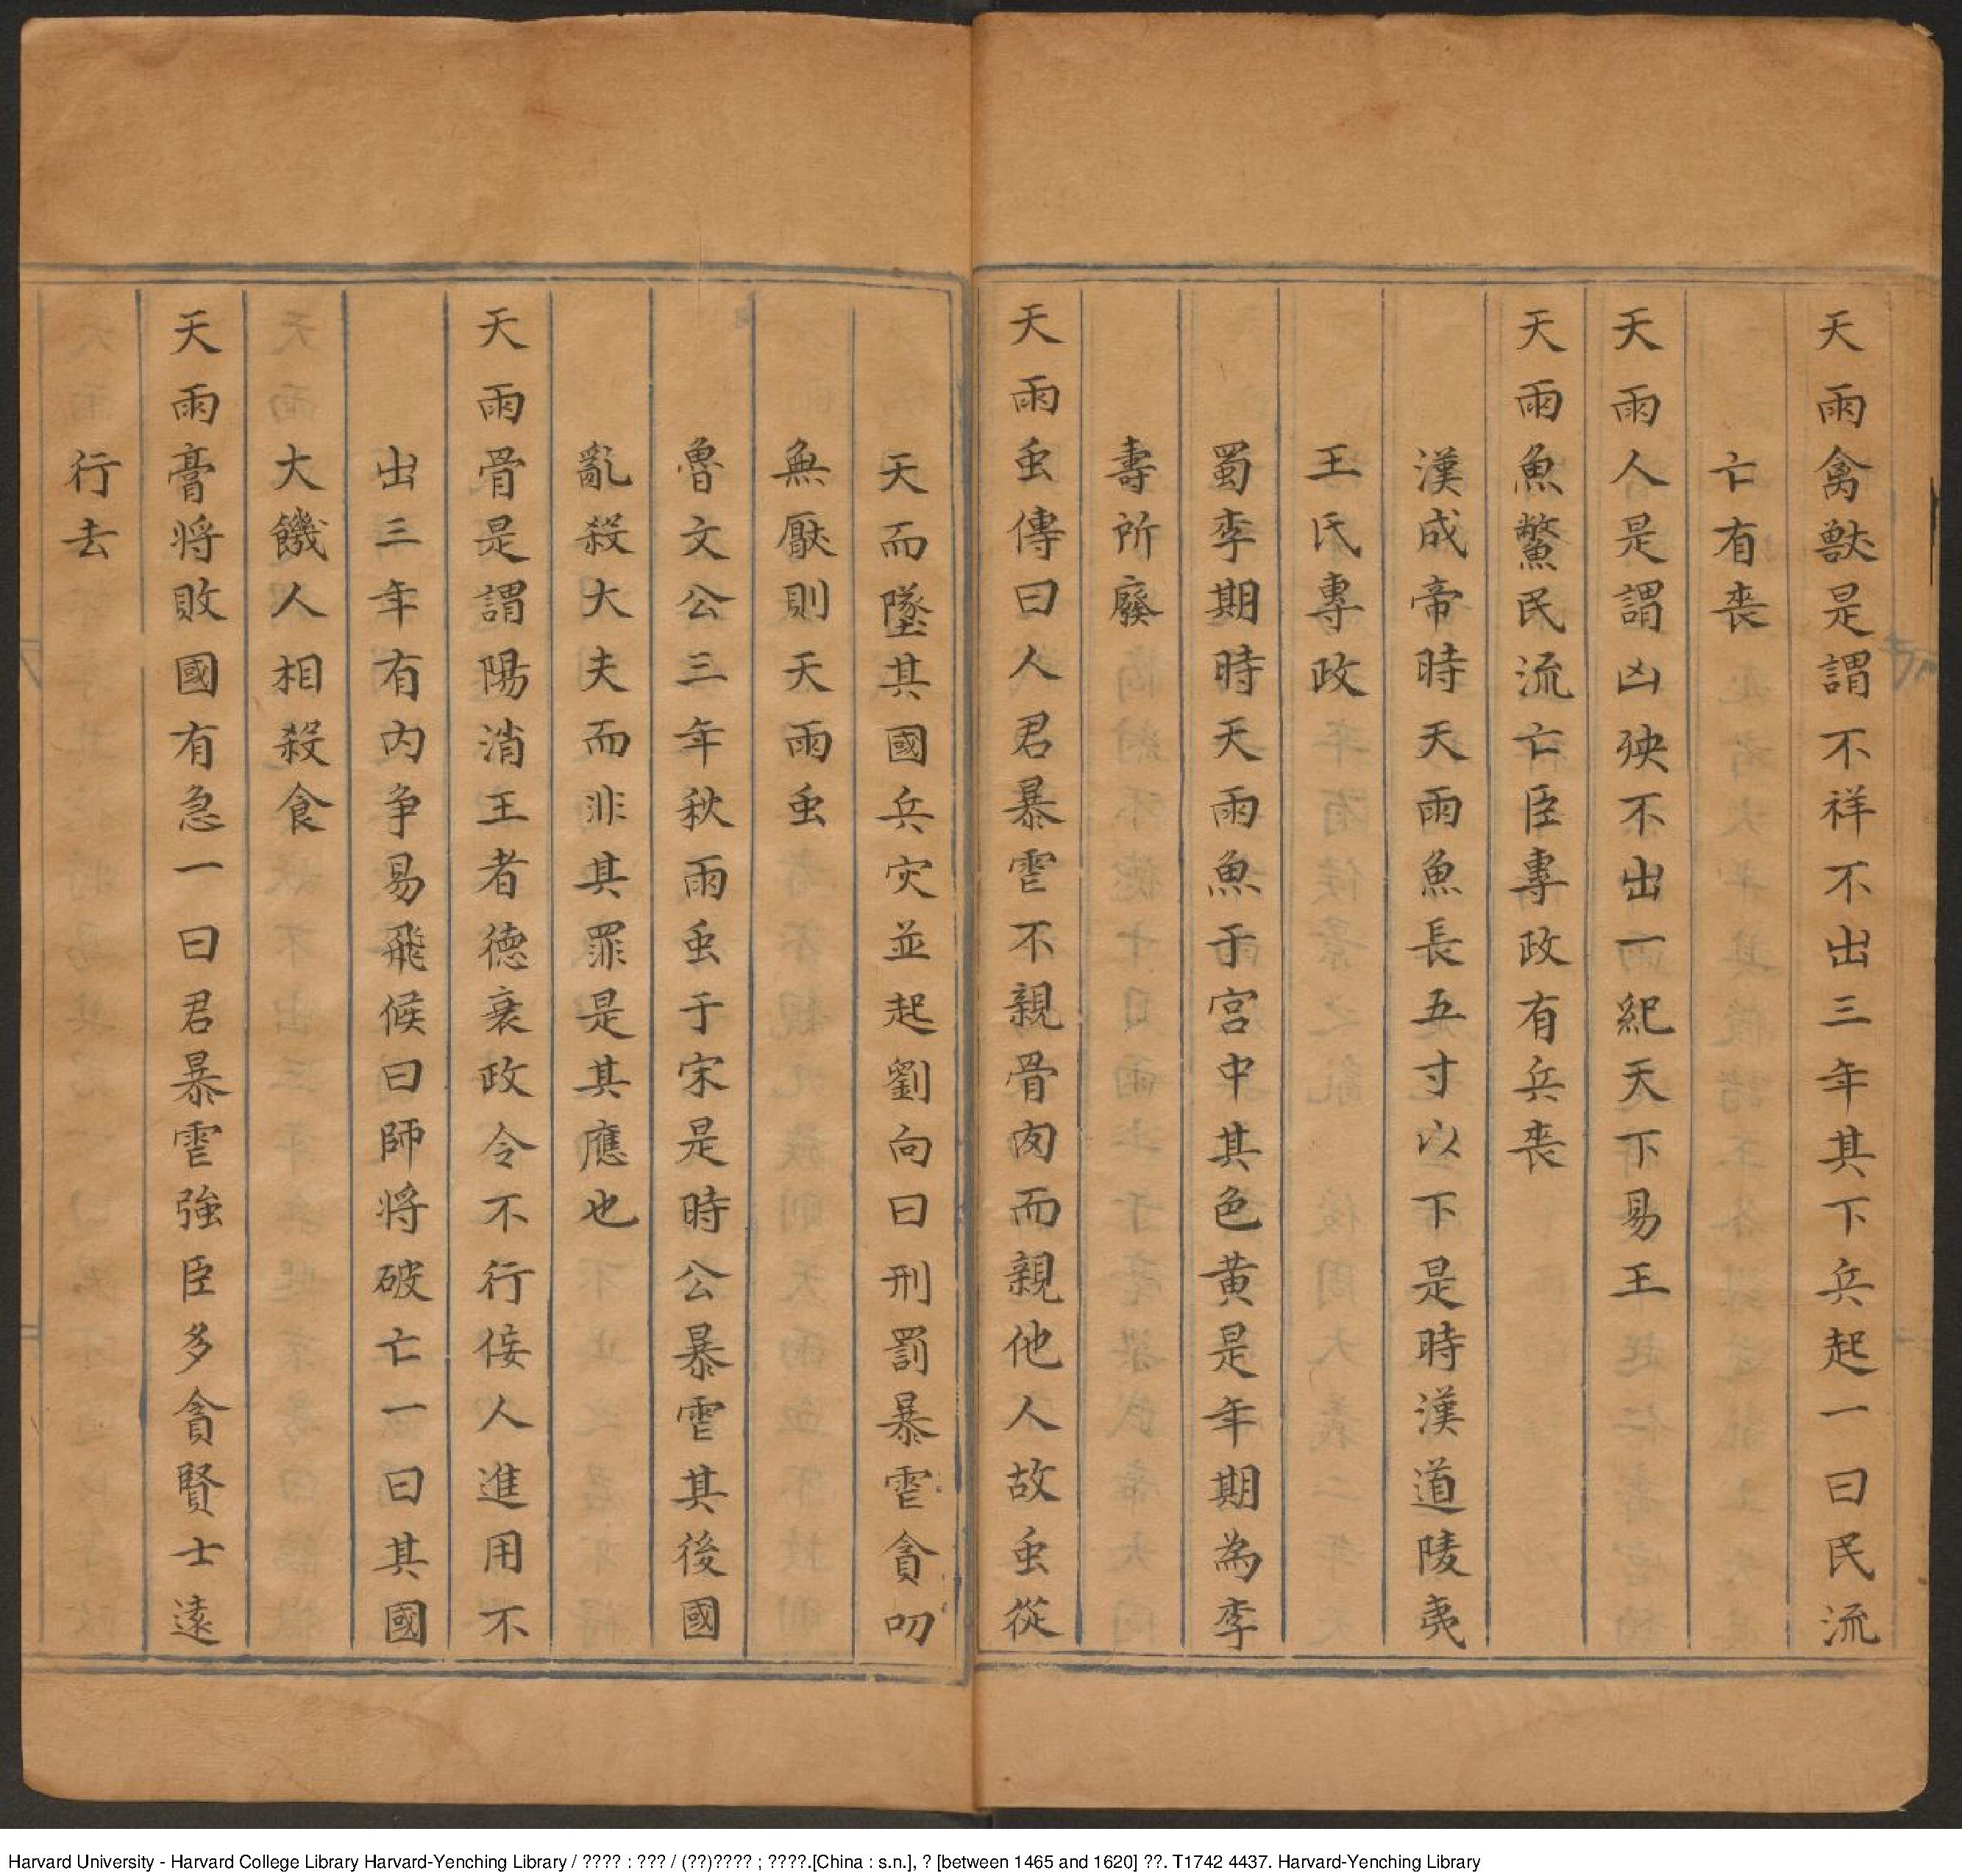 天雨禽獸是謂不祥不出三年其下兵起一曰民流
亡有喪
天雨人是謂凶殃不出一紀天下易王
天雨魚鱉民流亡臣專政有兵喪
漢成帝時天雨魚長五寸以下是時漢道陵夷
王氏專政
蜀李期時天雨魚于宮中其色黄是年期為李
壽所廢
天雨虫傳曰人君暴虐不親骨肉而親他人故虫從
天而墜其國兵灾並起劉向曰刑罰暴虐貪叨
無厭則天雨虫
魯文公三年秋雨虫于宋是時公暴虐其後國
亂殺大夫而非其罪是其應也
天雨骨是謂陽消王者德衰政令不行佞人進用不
出三年有内争易飛候曰師將破亡一曰其國
大饑人相殺食
天雨膏將敗國有急一曰君暴虐強臣多貪賢士遠
行去
Harvard University - Harvard College Library Harvard-Yenching Library / ???? : ??? / (??)???? ; ????.[China : s.n.], ? [between 1465 and 1620] ??. T1742 4437. Harvard-Yenching Library